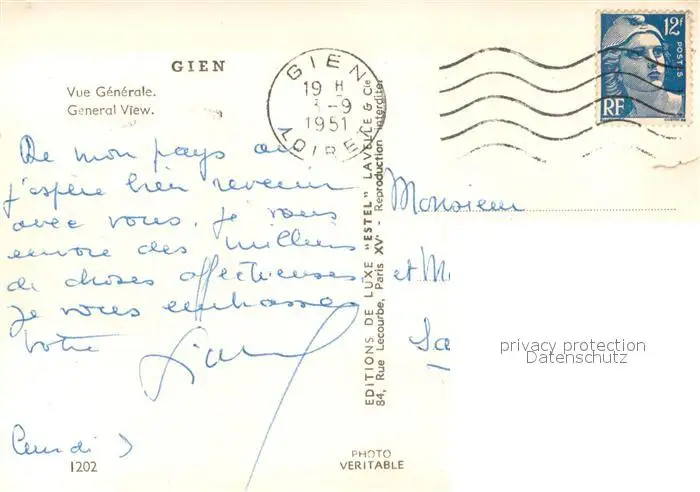 GIEN
Vue Générale.
General View.
GIEN
19 H
3-9
1951
LOIRET
12F
POSTES
RF
De mon pays où
j'espère bien revenir
avec vous, je vous
envoie des milliers
de choses affectueuses
Je vous embrasse
Votre
Lundi 3
1202
EDITIONS DE LUXE "ESTEL" LAVELLE & Cie
84, Rue Lecourbe, Paris XV - Reproduction interdite
PHOTO
VERITABLE
Monsieur
et M
privacy protection
Datenschutz